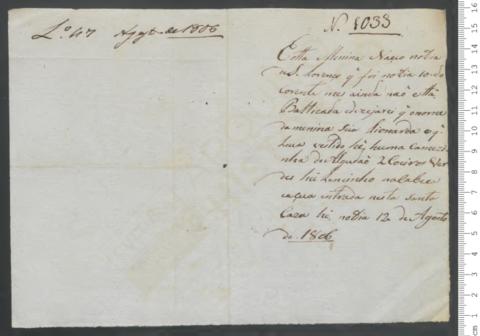 Lº 47 Agtº de 1806
N. 1033
Esta Menina Naceo no dia
de S. Lorenço q foi no dia 10 do
corente mes ainda naõ está
Baltizada dezejarei q o nome
da menina seia Lionarda o q
leva vestido hé huma Camizi
nha de Algudaõ 2 Coeiros Ver
des hú Lencinho na Cabeça
a qua intrada nesta Santa
Caza hé no dia 12 de Agosto
de 1806